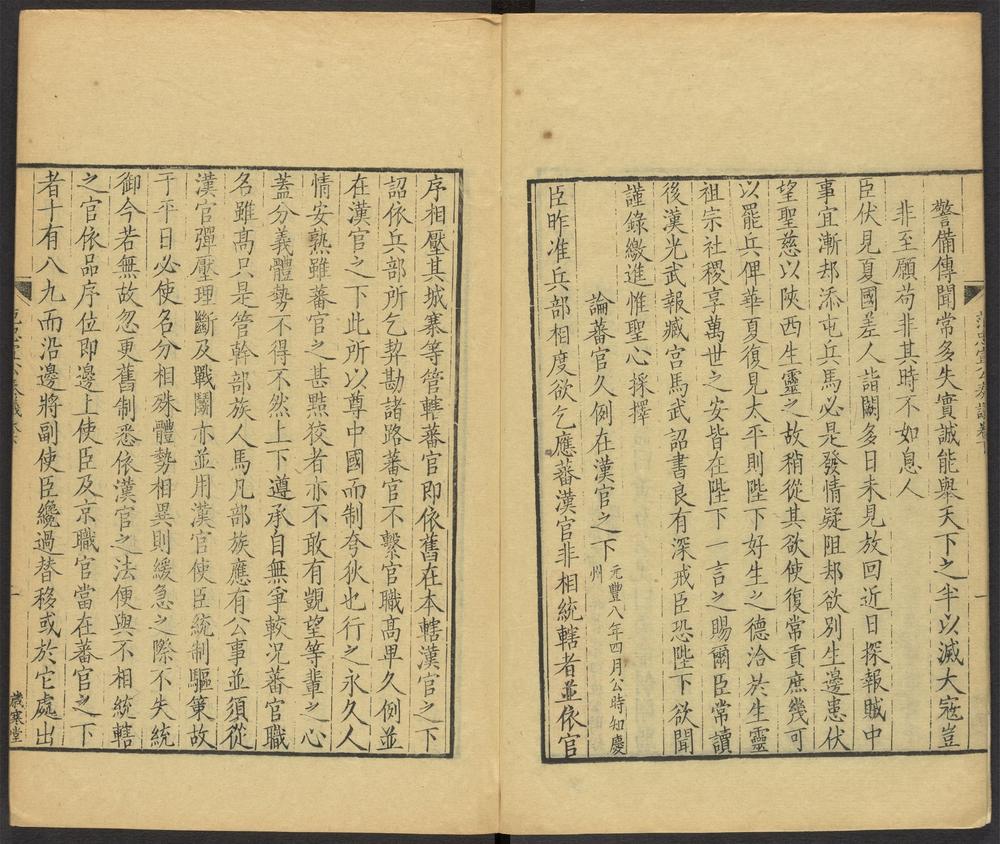 警備傳聞常多失實誠能舉天下之半以滅大寇豈
非至願苟非其時不如息人
臣伏見夏國差人詣闕多日未見放回近日探報賊中
事宜漸却添屯兵馬必是發情疑阻却欲別生邊患伏
望聖慈以陝西生靈之故稍從其欲使復常貢庶幾可
以罷兵俾華夏復見太平則陛下好生之德洽於生靈
祖宗社稷享萬世之安皆在陛下一言之賜爾臣常讀
後漢光武報臧宮馬武詔書良有深戒臣恐陛下欲聞
謹錄繳進惟聖心採擇
論蕃官久例在漢官之下
元豐八年四月公時知慶
州
臣昨准兵部相度欲乞應蕃漢官非相統轄者並依官
序相壓其城寨等管轄蕃官即依舊在本轄漢官之下
詔依兵部所乞契勘諸路蕃官不繫官職高卑久例並
在漢官之下此所以尊中國而制夸狄也行之永久人
情安熟雖蕃官之甚黠狡者亦不敢有覬望等輩之心
蓋分義體勢不得不然上下遵承自無爭較況蕃官職
名雖高只是管幹部族人馬凡部族應有公事並須從
漢官彈壓理斷及戰鬭亦並用漢官使臣統制驅策故
于平日必使名分相殊體勢相異則緩急之際不失統
御今若無故忽更舊制悉依漢官之法便與不相統轄
之官依品序位即邊上使臣及京職官當在蕃官之下
者十有八九而沿邊將副使臣纔過替移或於它處出
歲寒堂